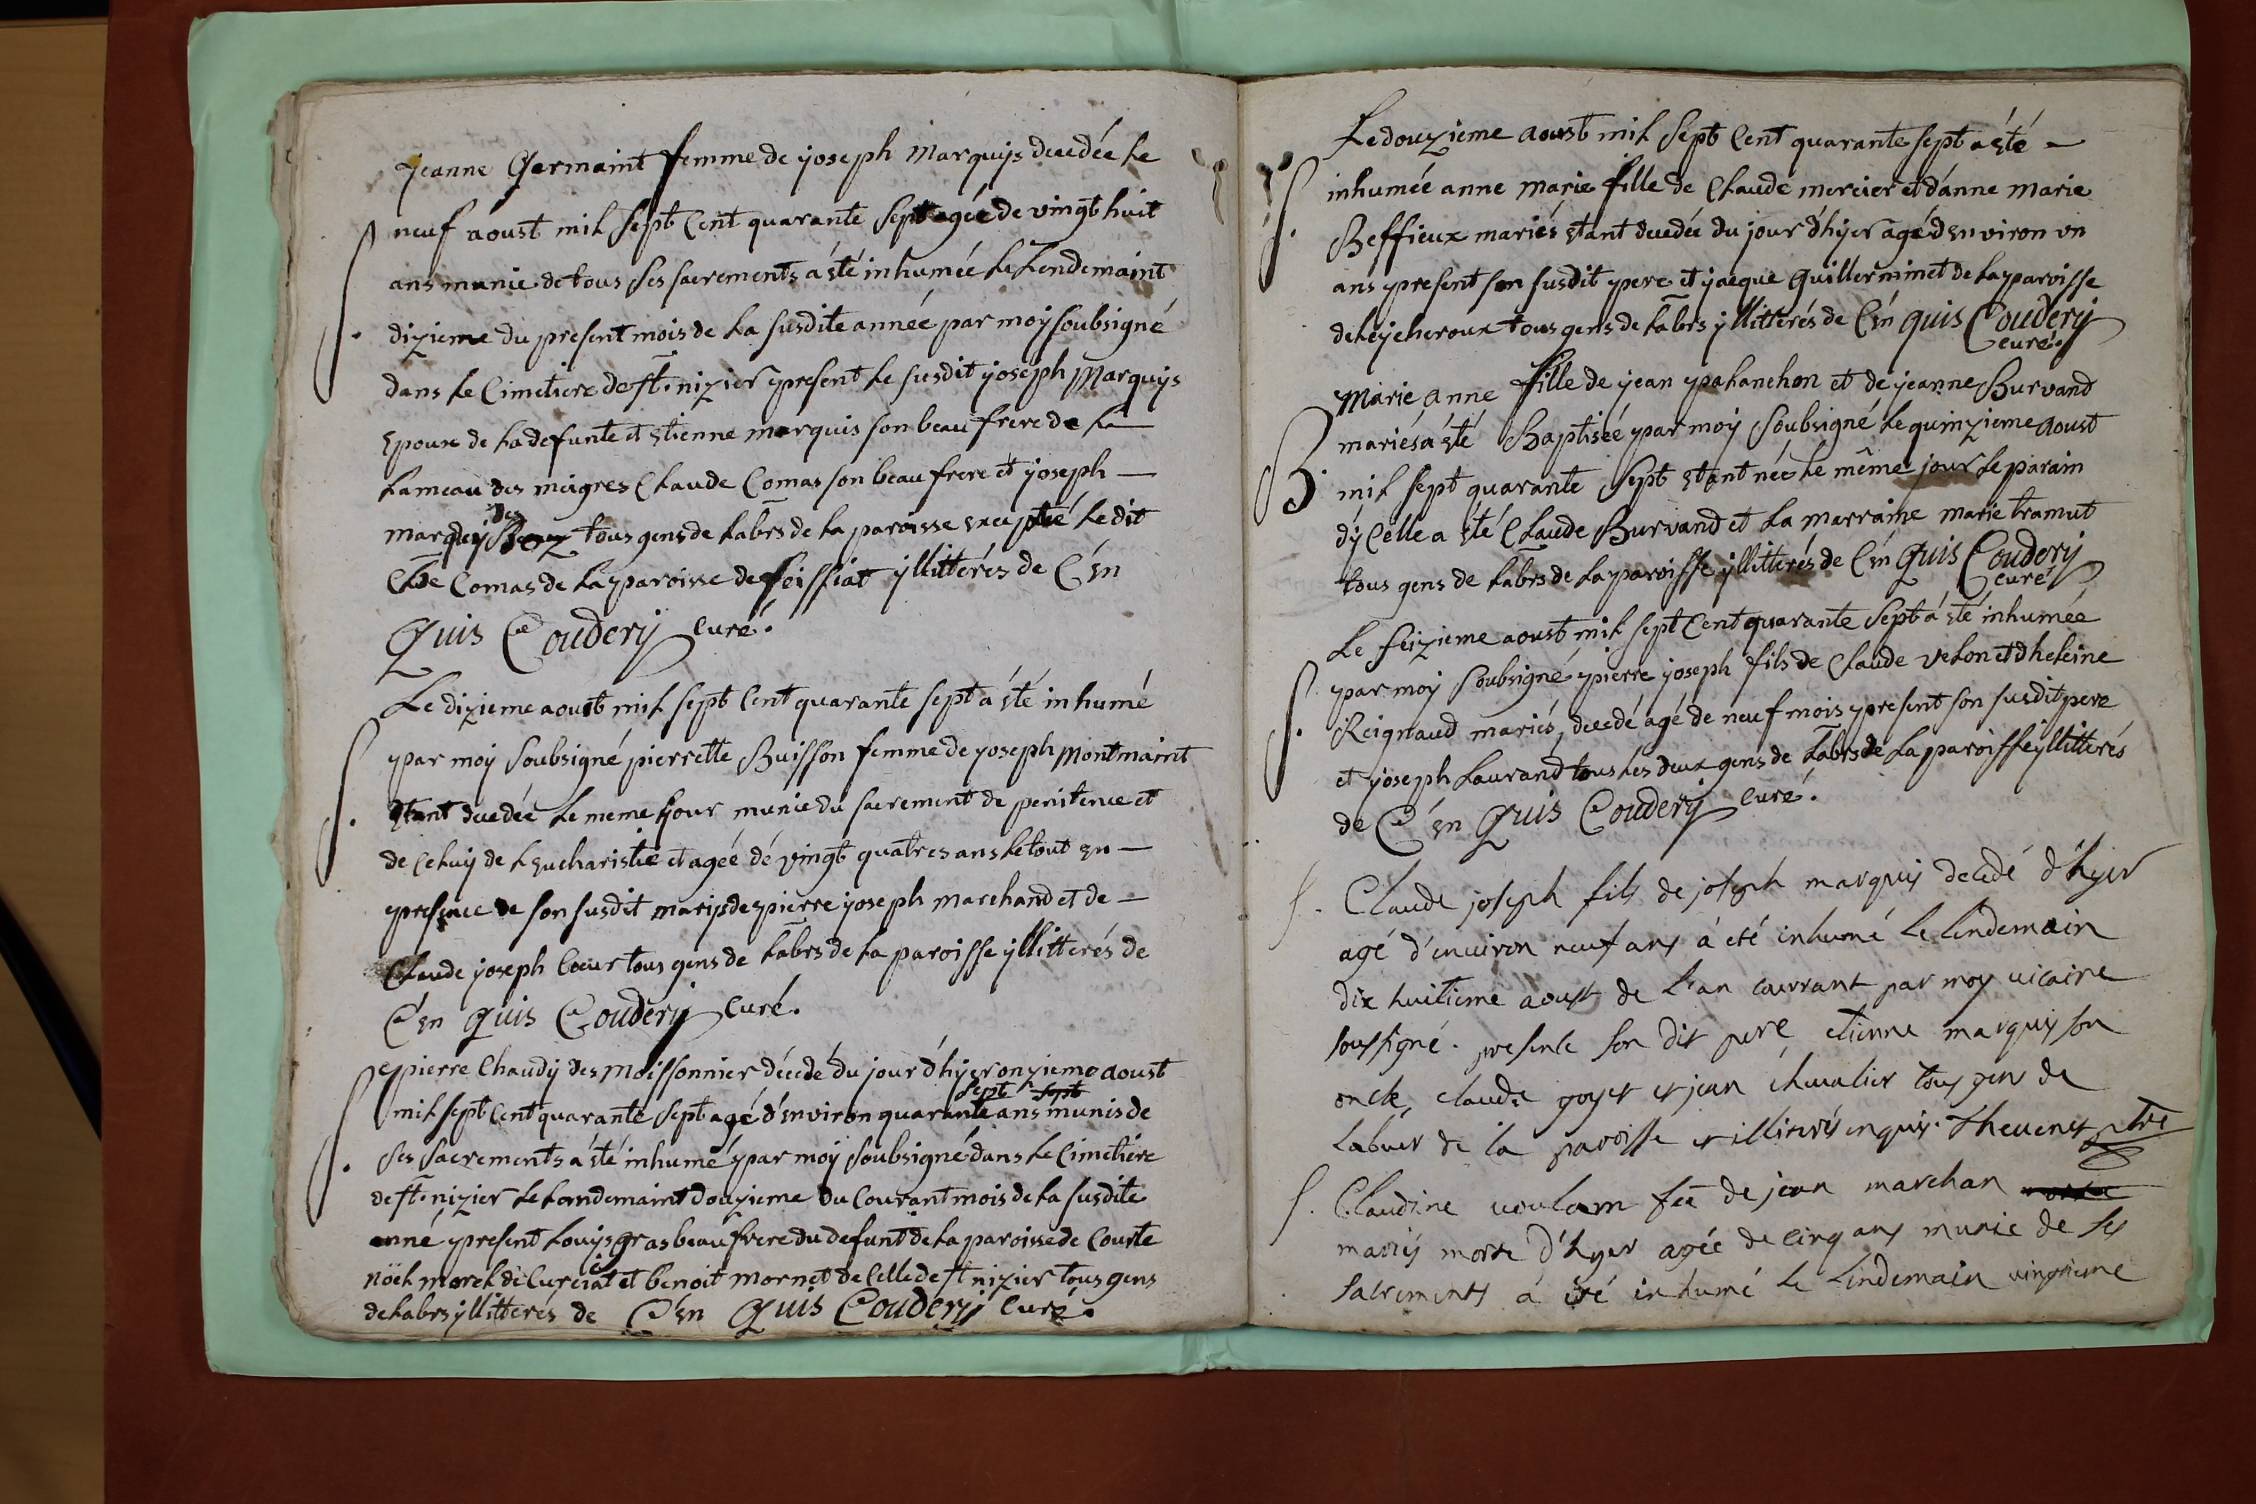 jeanne Germaint femme de joseph Marquis decedée le
S. neuf aoust mil sept Cent quarante sept agée de vingt huit
ans munie de tous ses sacrements a été inhumée le Lendemaint
dizieme du present mois de la susdite année par moy soubsigné
dans le Cimetiere de st. nizier present le susdit joseph Marquis
Epoux de la defunte et Etienne marquis son beau frere de la
hameau des meigres Claude Comas son beau frere et joseph
marquis des tous gens de labrs de la paroisse excepté le dit
Cde Comas de la paroisse de foissiat yllitterés de C én
Quis Coudery Curé.
Le dizieme aoust mil sept Cent quarante sept a été inhumé
S. par moy soubsigné pierrette Buisson femme de joseph Montmaint
Etant decedée le meme jour munie du sacrement de penitence et
de Celuy de L Eucharistie et agée dé vingt quatres ans le tout En
presence de son susdit marys de pierre joseph marchand et de
Claude joseph Coeur tous gens de labrs de la paroisse yllitterés de
C én Quis Coudery Curé.
pierre Chaudy des Moissonnier décedé du jour d'hyer onzieme aoust
sept sept
S. mil sept Cent quarante sept agé d'Environ quarante ans munis de
ses sacrements a été inhumé par moy soubsigné dans le Cimetiere
de st. nizier le Landemaint douzieme du Courant mois de la susdite
anné present Louys gras beau frere du defunt de la paroisse de Courte
nöel morel de Curciat et benoit mornet de Celle de st nizier tous gens
de labrs yllitterés de C én Quis Coudery Curé.
Le douzieme aoust mil sept Cent quarante sept a été
S. inhumée anne marie fille de Claude mercier et d'anne marie
Beffieux mariés étant decedée du jour d'hyer agé d'Environ un
ans present son susdit pere et jacque Guillerminet de la paroisse
de leycheroux tous gens de labrs yllitterés de C én Quis Coudery
curé.
Marie anne fille de jean palanchon et de jeanne Burvand
B. mariés a été Baptisée par moy soubsigné le quinzieme aoust
mil sept quarante sept étant née le même jour le parain
d'y Celle a été Claude Burvand et la marraine marie tramut
tous gens de labrs de la paroisse yllitterés de C én Quis Coudery
curé
Le seizieme aoust mil sept Cent quarante sept a été inhumée
S. par moy soubsigné pierre joseph fils de Claude velon et d heleine
Reignaud mariés, decedé agé de neuf mois present son susdit pere
et joseph Laurand tous les deux gens de labrs de la paroisse yllitterés
de C én Quis Coudery Curé.
S. Claude joseph fils de joseph marquis decedé d'hyer
agé d'environ neuf ans a eté inhumé le lendemain
dix huitieme aoust de l'an courrant par moy vicaire
soussigné. presents son dit pere etienne marquis son
oncle, claude goyet et jean chevalier tous gens de
labuer de la paroisse et illiterés enquis. Thevenet ptre
S. Claudine voulam fee de jean marchan
mariés morte d'hyer agée de cinq ans munie de ses
sacrements a eté inhumé le lendemain vingtieme